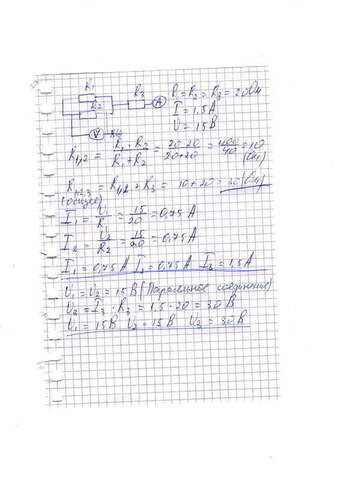 R₁
R₂ R₃ A R₁ = R₂ = R₃ = 20 Ом
I = 1,5 А
V U = 15 В
R₁,₂ = R₁ · R₂ / R₁ + R₂ = 20 · 20 / 20 + 20 = 400 / 40 = 10 (Ом)
R₁,₂,₃ = R₁,₂ + R₃ = 10 + 20 = 30 (Ом)
(общее)
I₁ = U₁ / R₁ = 15 / 20 = 0,75 А
I₂ = U₂ / R₂ = 15 / 20 = 0,75 А
I₁ = 0,75 А I₂ = 0,75 А I₃ = 1,5 А
U₁ = U₂ = 15 В (Паралельное соединение)
U₃ = I₃ · R₃ = 1,5 · 20 = 30 В
U₁ = 15 В U₂ = 15 В U₃ = 30 В